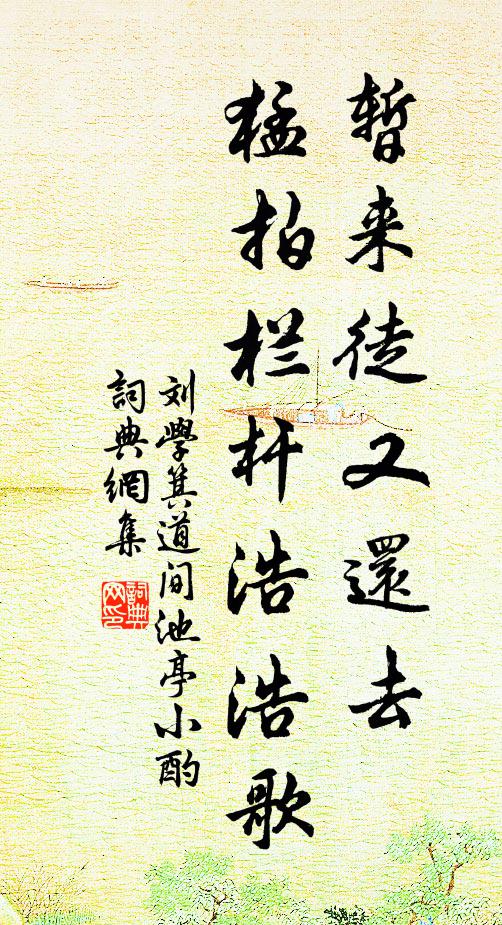 暫来徒又還去
猛拍栏杆浩浩歌
刘學箕道间池亭小酌
詞典網集
詞典网印